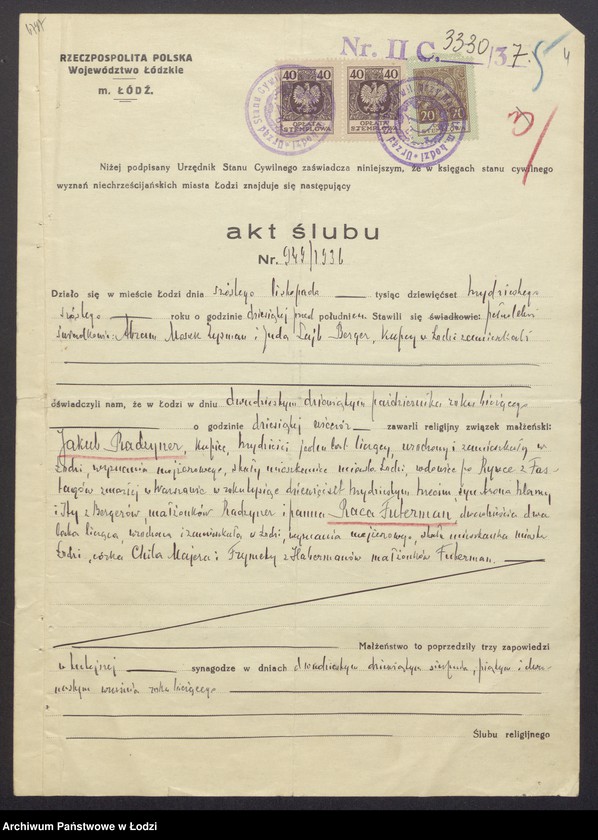 Nr. II C. 3330/37.
4
RZECZPOSPOLITA POLSKA
Województwo Łódzkie
m. ŁÓDŹ.
40 40 40 40 20
OPŁATA STEMPLOWA OPŁATA STEMPLOWA
Niżej podpisany Urzędnik Stanu Cywilnego zaświadcza niniejszym, że w księgach stanu cywilnego
wyznań niechrześcijańskich miasta Łodzi znajduje się następujący
akt ślubu
Nr. 949/1936
Działo się w mieście Łodzi dnia szóstego listopada tysiąc dziewięćset trzydziestego
szóstego roku o godzinie dziesiątej przed południem. Stawili się świadkowie: pełnoletni
świadkowie: Abram Moszek Zysman i Juda Lajb Berger, kupcy w Łodzi zamieszkali
i oświadczyli nam, że w Łodzi w dniu dwudziestym dziewiątym października roku bieżącego
o godzinie dziesiątej wieczór zawarli religijny związek małżeński:
Jakub Radzyner, kupiec, trzydzieści jeden lat liczący, urodzony i zamieszkały w
Łodzi, wyznania mojżeszowego, stały mieszkaniec miasta Łodzi, wdowiec po Rywce z Fas-
tagów zmarłej w Warszawie w roku tysiąc dziewięćset trzydziestym trzecim, syn Arona Szlamy
i Ity z Bergerów, małżonków Radzyner i panna Raca Futerman, dwadzieścia dwa
lata licząca, urodzona i zamieszkała w Łodzi, wyznania mojżeszowego, stała mieszkanka miasta
Łodzi, córka Chila Majera i Frymety z Habermanów małżonków Futerman.
Małżeństwo to poprzedziły trzy zapowiedzi
w tutejszej synagodze w dniach dwudziestym dziewiątym sierpnia, piątym i dwu-
nastym września roku bieżącego
Ślubu religijnego
Archiwum Państwowe w Łodzi